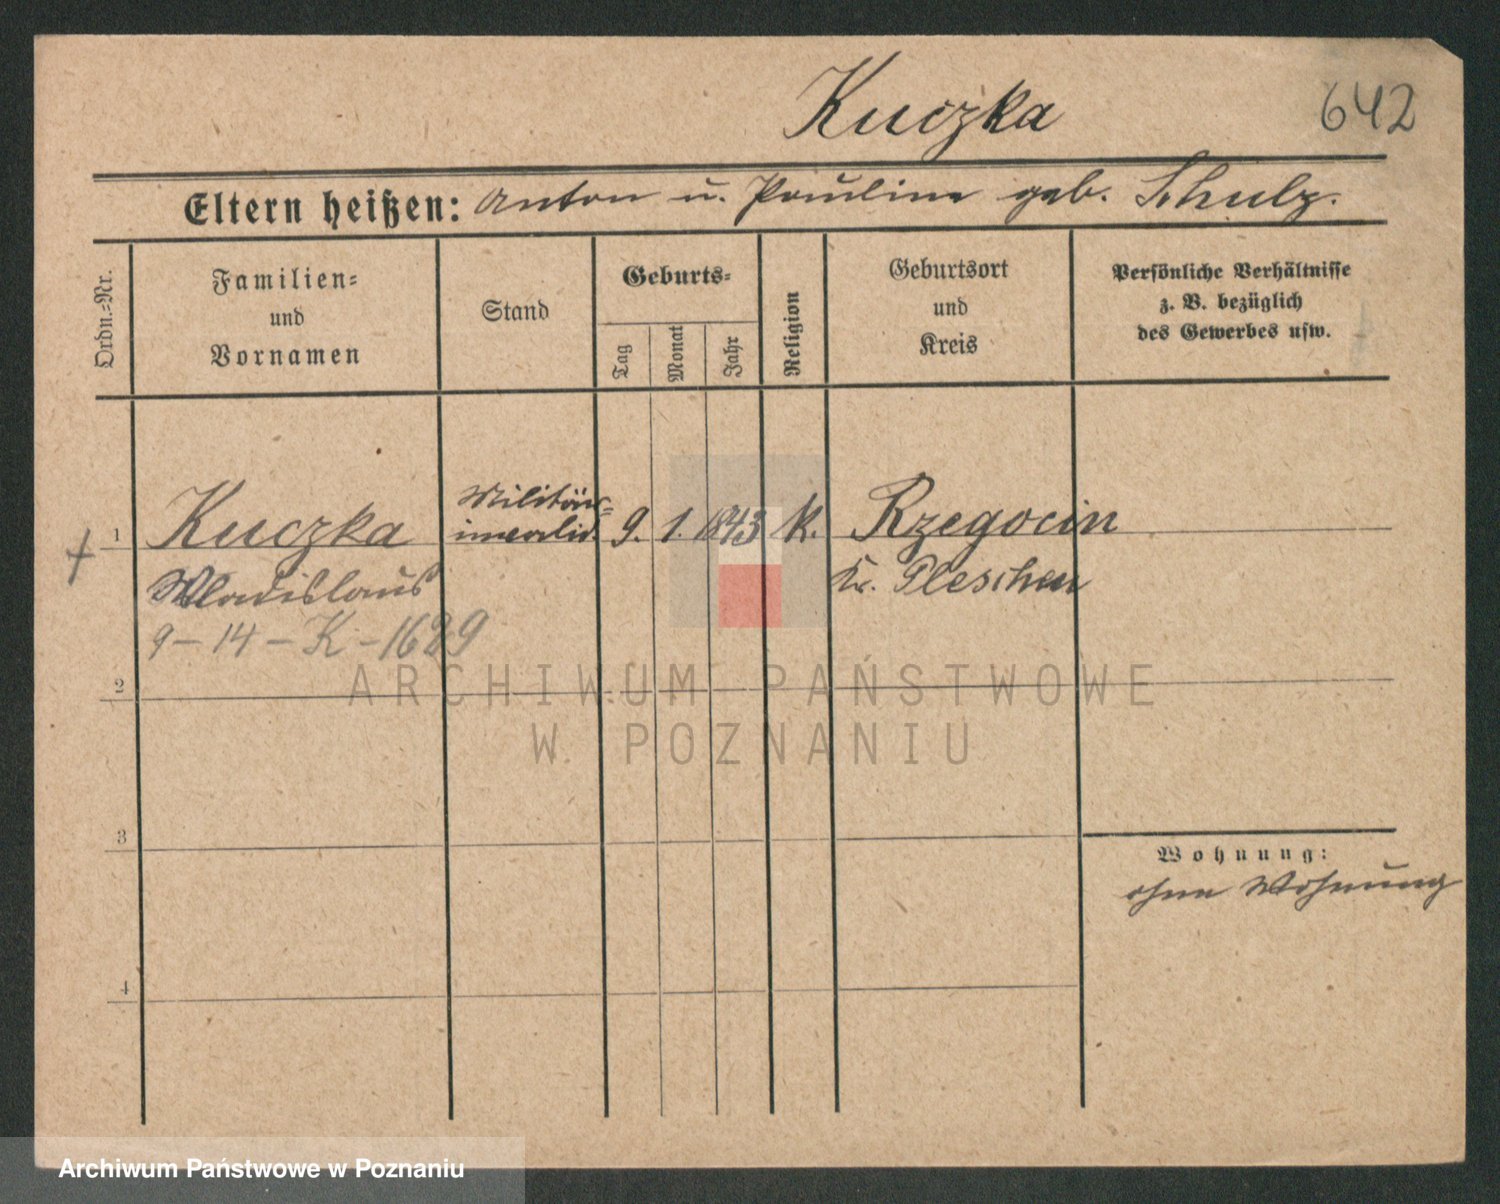 Kuczka
642
Eltern heißen: Anton u. Pauline geb. Schulz.
Ordn.-Nr.
Familien-
und
Vornamen
Stand
Geburts-
Tag
Monat
Jahr
Religion
Geburtsort
und
Kreis
Persönliche Verhältnisse
z. B. bezüglich
des Gewerbes usw.
1
Kuczka
Wladislaus
9-14-K-1689
Militär-
invalid.
9. 1. 1843 K.
Rzegocin
Kr. Pleschen
2
3
4
Wohnung:
ohne Wohnung
ARCHIWUM PAŃSTWOWE
W POZNANIU
Archiwum Państwowe w Poznaniu